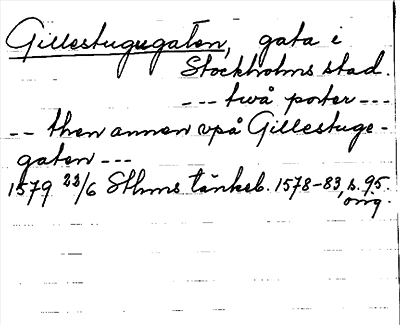 Gillestugugaten, gata i
Stockholms stad.
--- twå porter ---
-- then annen vpå Gillestuge-
gaten ---
1579 23/6 Sthms tänkeb. 1578-83, s. 95.
orig.